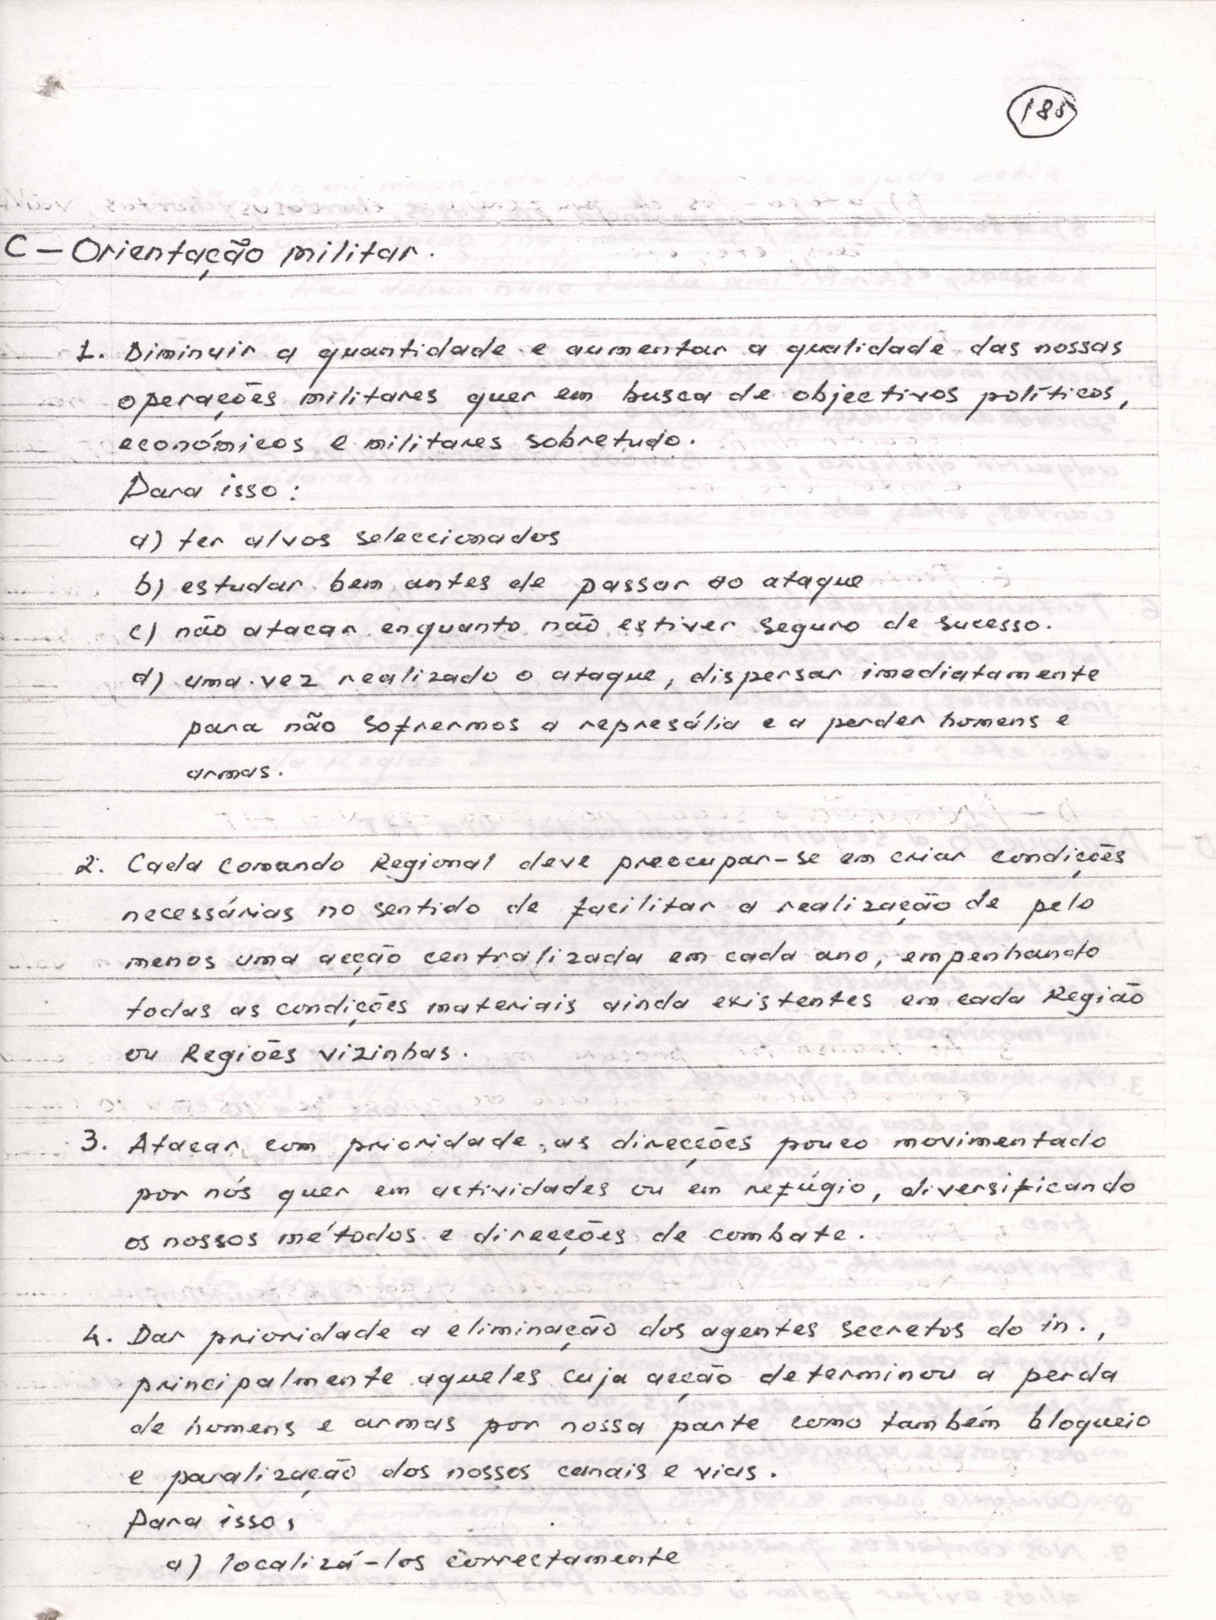 185
C - Orientação militar.
1. Diminuir a quantidade e aumentar a qualidade das nossas
operações militares quer em busca de objectivos políticos,
económicos e militares sobretudo.
Para isso:
a) ter alvos seleccionados
b) estudar bem antes de passar ao ataque
c) não atacar enquanto não estiver seguro de sucesso.
d) uma vez realizado o ataque, dispersar imediatamente
para não sofrermos a represália e a perder homens e
armas.
2. Cada Comando Regional deve preocupar-se em criar condições
necessárias no sentido de facilitar a realização de pelo
menos uma acção centralizada em cada ano, empenhando
todas as condições materiais ainda existentes em cada Região
ou Regiões vizinhas.
3. Atacar com prioridade as direcções pouco movimentado
por nós quer em actividades ou em refúgio, diversificando
os nossos métodos e direcções de combate.
4. Dar prioridade a eliminação dos agentes secretos do in.,
principalmente aqueles cuja acção determinou a perda
de homens e armas por nossa parte como também bloqueio
e paralização dos nossos canais e vias.
Para isso,
a) localizá-los correctamente